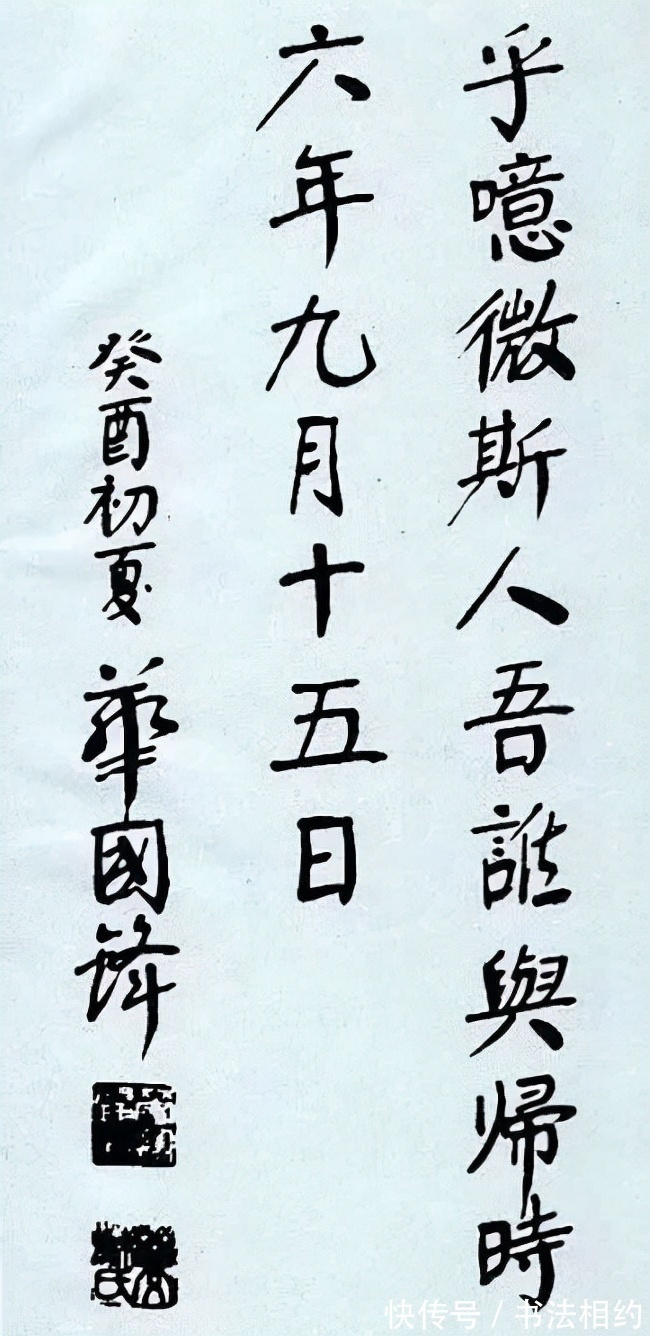 乎噫微斯人吾誰與歸時
六年九月十五日
癸酉初夏 華國鋒
快传号 / 书法相约